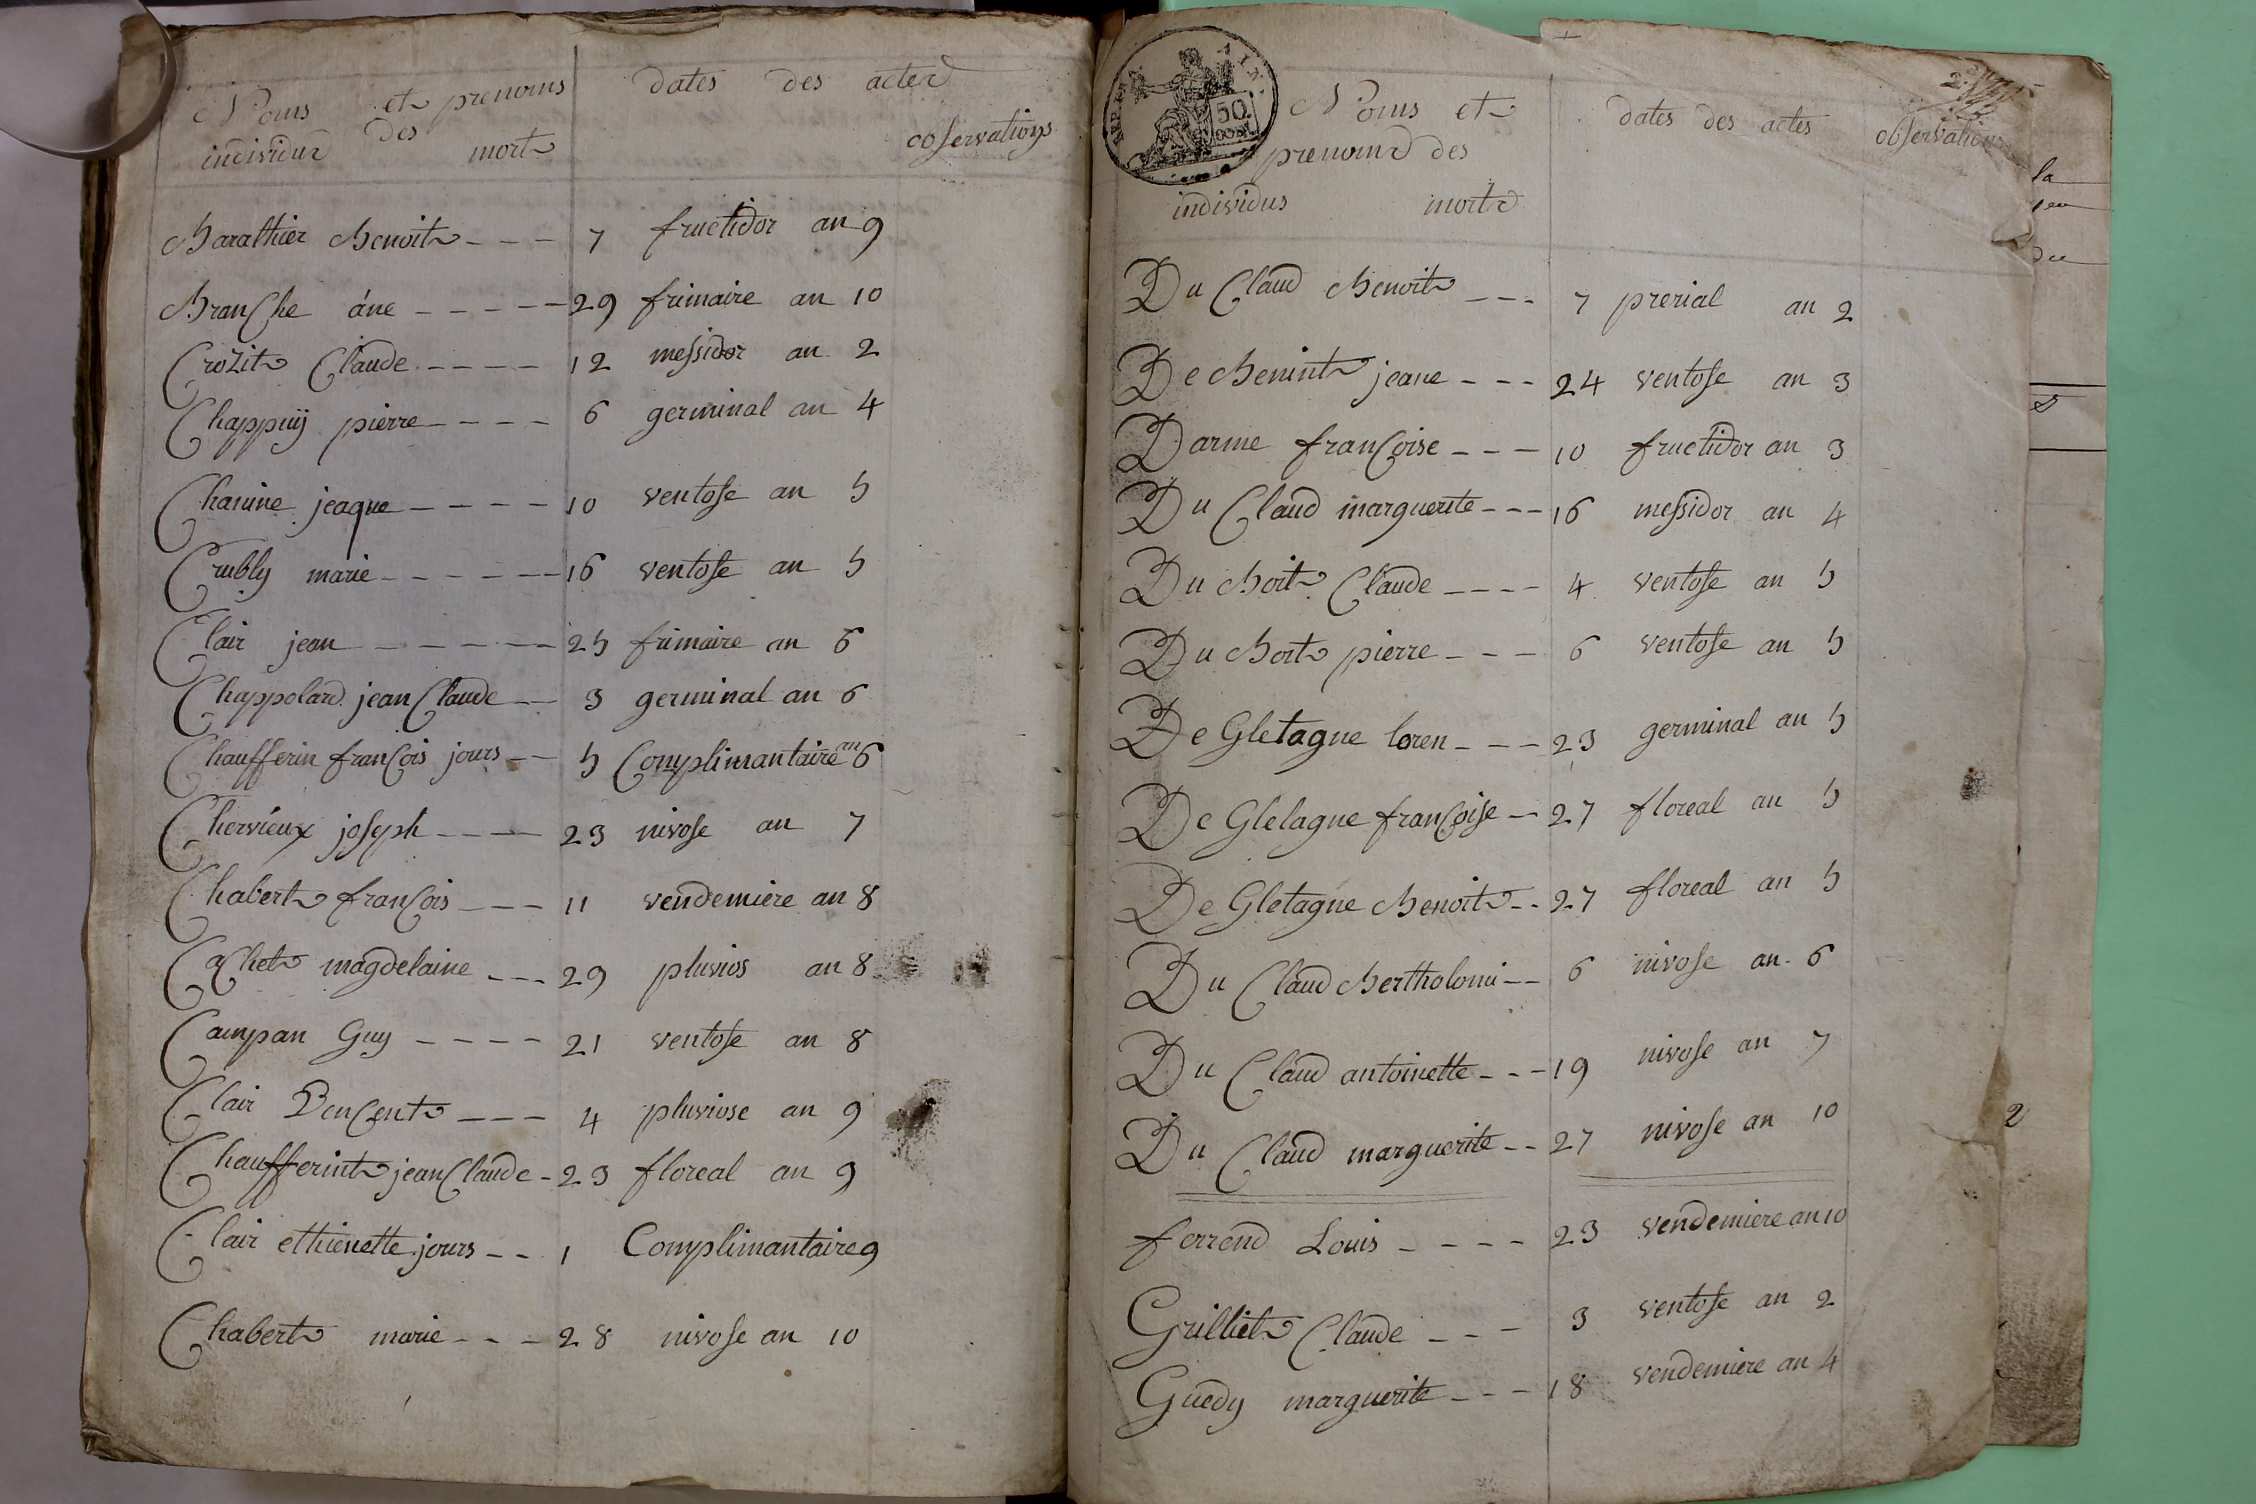 Noms et prenoms
des
individus morts
dates des actes
observations
Barathier Benoit --- 7 fructidor an 9
Branche áne ----- 29 frimaire an 10
Crozit Claude ----- 12 messidor an 2
Chappuij pierre ---- 6 germinal an 4
Chanine jeaque ----- 10 ventose an 5
Crubly marie ------ 16 ventose an 5
Clair jean ------ 25 frimaire an 6
Chappolard jean Claude -- 3 germinal an 6
Chaufferin francois jours -- 5 Complimantaire an 6
Chervieux joseph ---- 23 nivose an 7
Chabert francois --- 11 vendemiere an 8
Cachet magdelaine --- 29 pluvios an 8
Campan Guy ---- 21 ventose an 8
Clair Vencent --- 4 pluviose an 9
Chaufferint jean Claude - 23 floreal an 9
Clair ethienette jours -- 1 Complimantaire 9
Chabert marie --- 28 nivose an 10
REP. FRA
50
CENT
Noms et
prenoms des
individus morts
dates des actes
observations
Du Claud Benoit --- 7 prerial an 2
De Benint jeane --- 24 ventose an 3
Darme francoise --- 10 fructidor an 3
Du Claud marguerite --- 16 messidor an 4
Du Boit Claude ---- 4 ventose an 5
Du Boit pierre --- 6 ventose an 5
De Gletagne loren --- 23 germinal an 5
De Gletagne francoise -- 27 floreal an 5
De Gletagne Benoit -- 27 floreal an 5
Du Claud Bertholomi -- 6 nivose an 6
Du Claud antoinette --- 19 nivose an 7
Du Claud marguerite -- 27 nivose an 10
ferrend Louis ---- 23 vendemiere an 10
Grilliet Claude --- 3 ventose an 2
Guedy marguerite --- 18 vendemiere an 4
la
du
2